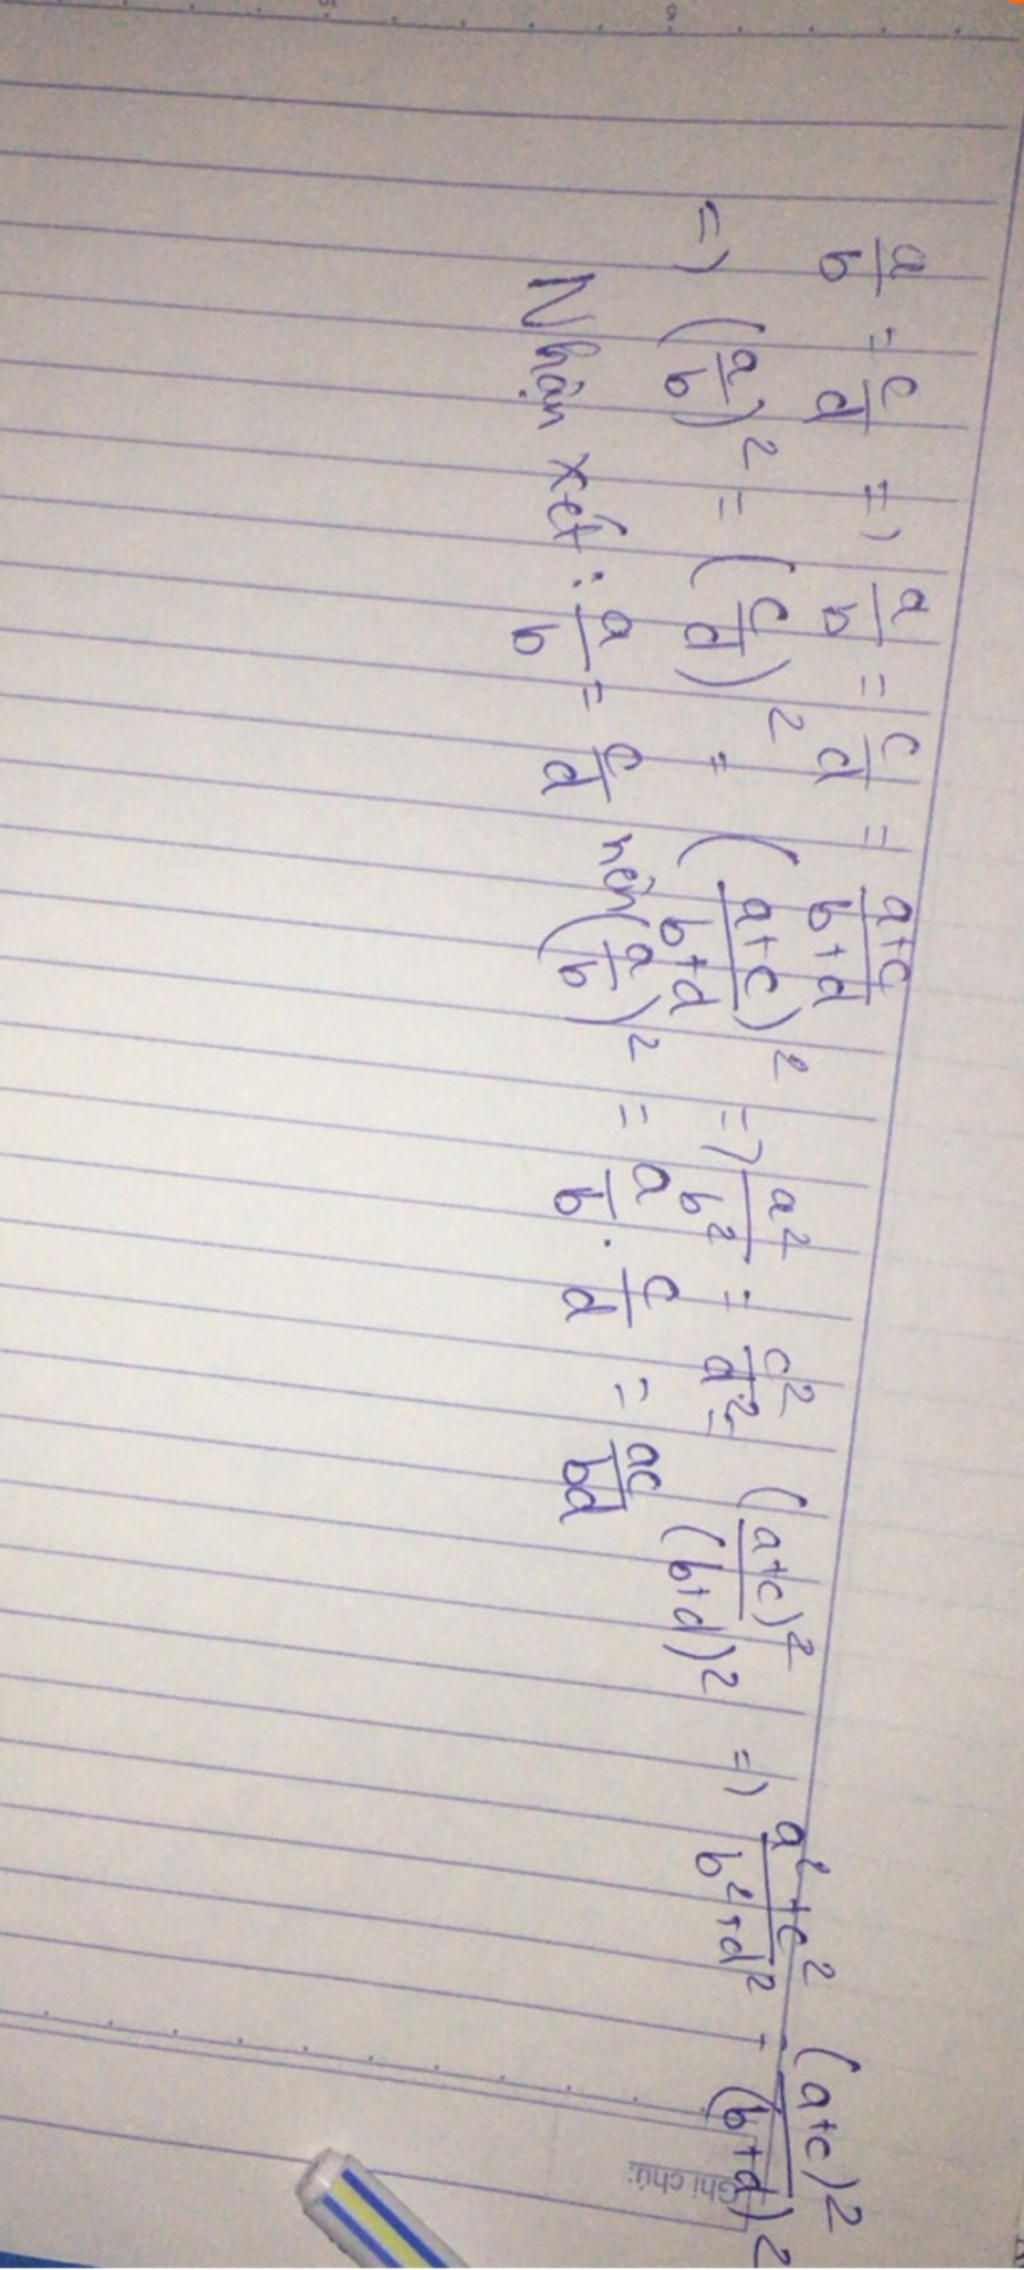 a/b = c/d => a/b = c/d = a+c/b+d
=> (a/b)² = (c/d)² = (a+c/b+d)² => a²/b² = c²/d² = (a+c)²/(b+d)² => a²+c²/b²+d² = (a+c)²/(b+d)²
Nhận xét: a/b = c/d nên (a/b)² = a/b . c/d = ac/bd
Ghi chú: